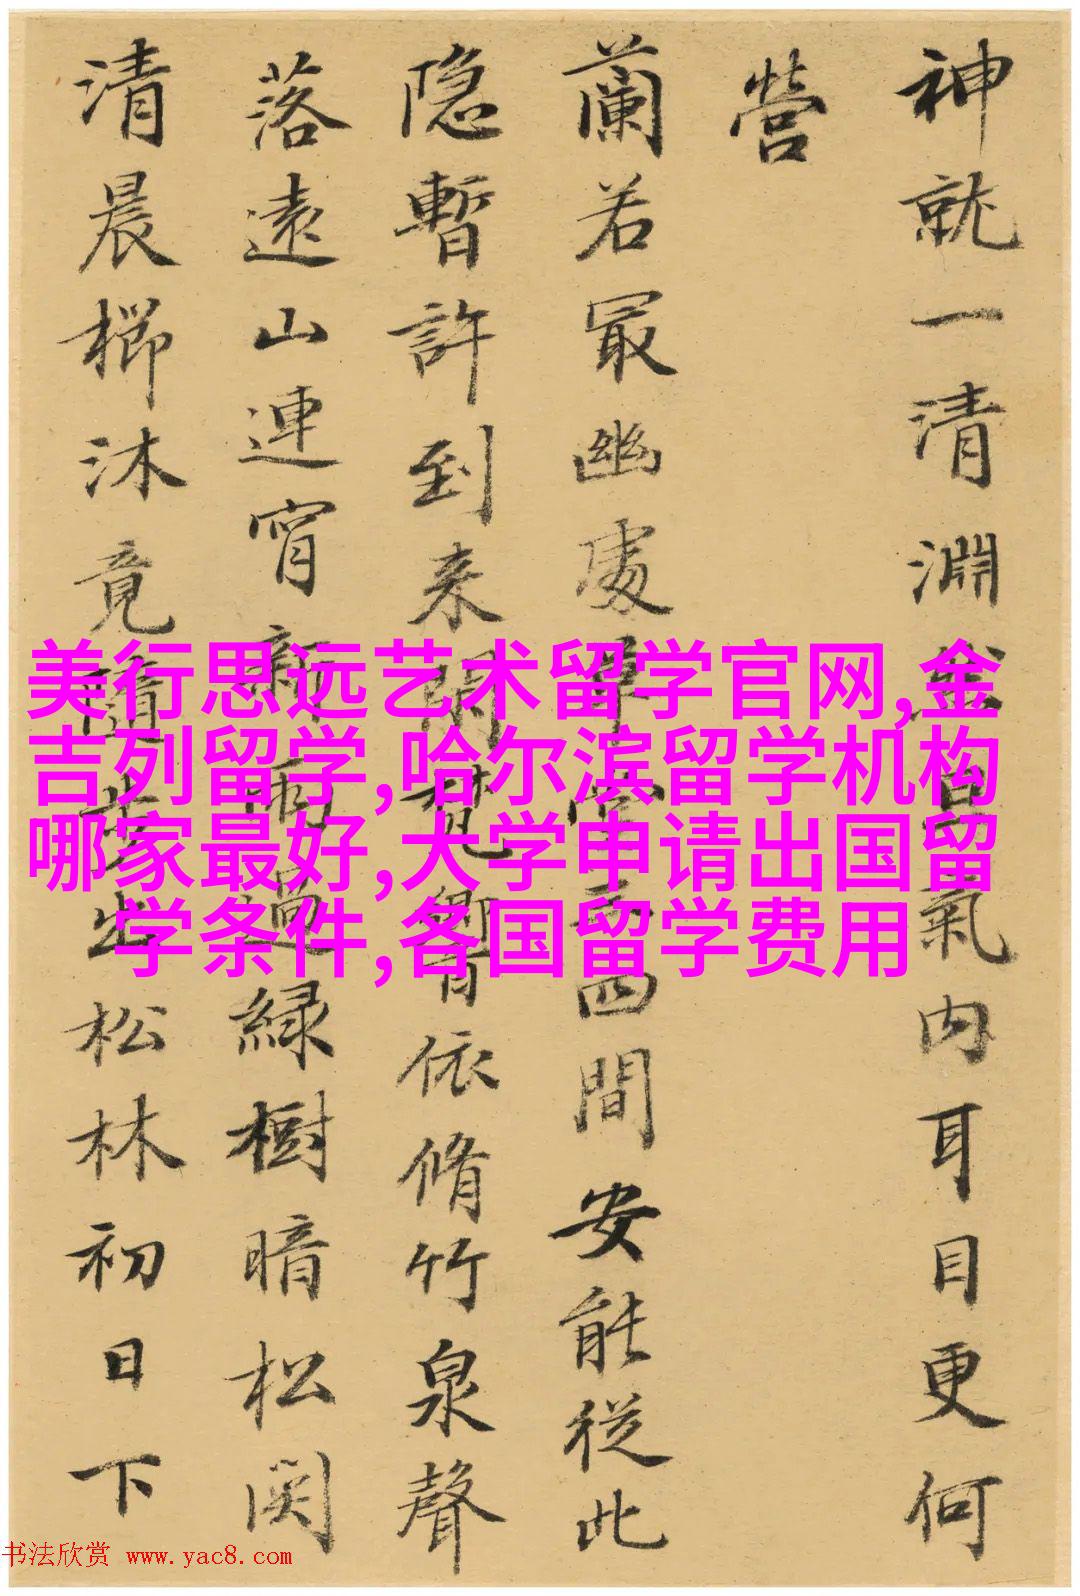 神就一清淵氣内耳目更何
營
蘭若冣幽處四間安能從此
隐暫許到来依脩竹泉聲
落遠山連宵新雨過緑樹暗松関
清晨櫛沐竟隨步出松林初日下
美行思远艺术留学官网,金
吉列留学,哈尔滨留学机构
哪家最好,大学申请出国留
学条件,各国留学费用
书法欣赏 www.yac8.com